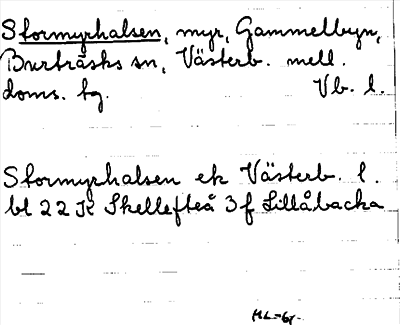 Stormyrhalsen, myr, Gammelbyn,
Burträsks sn, Västerb. mell.
doms. fg. Vb. l.
Stormyrhalsen ek Västerb. l.
bl 22 K Skellefteå 3f Lillåbacka
HL-61-